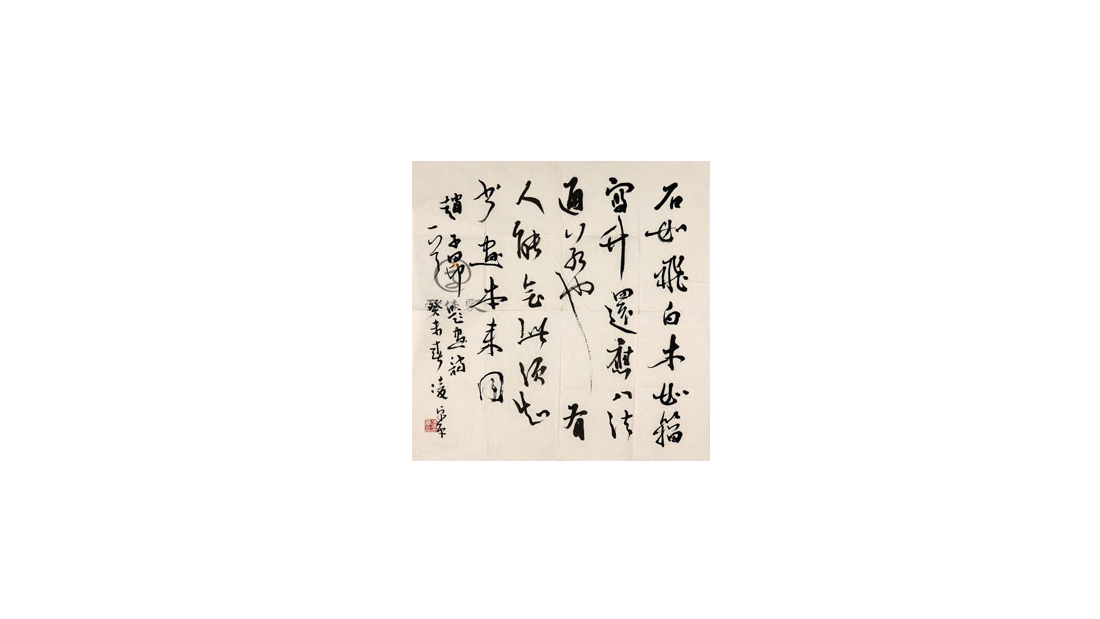 石如飛白木如籀
寫竹還應八法
通若也有
人能會此須知
書畫本来同
趙子昂題畫詩
一首 癸未春 凌